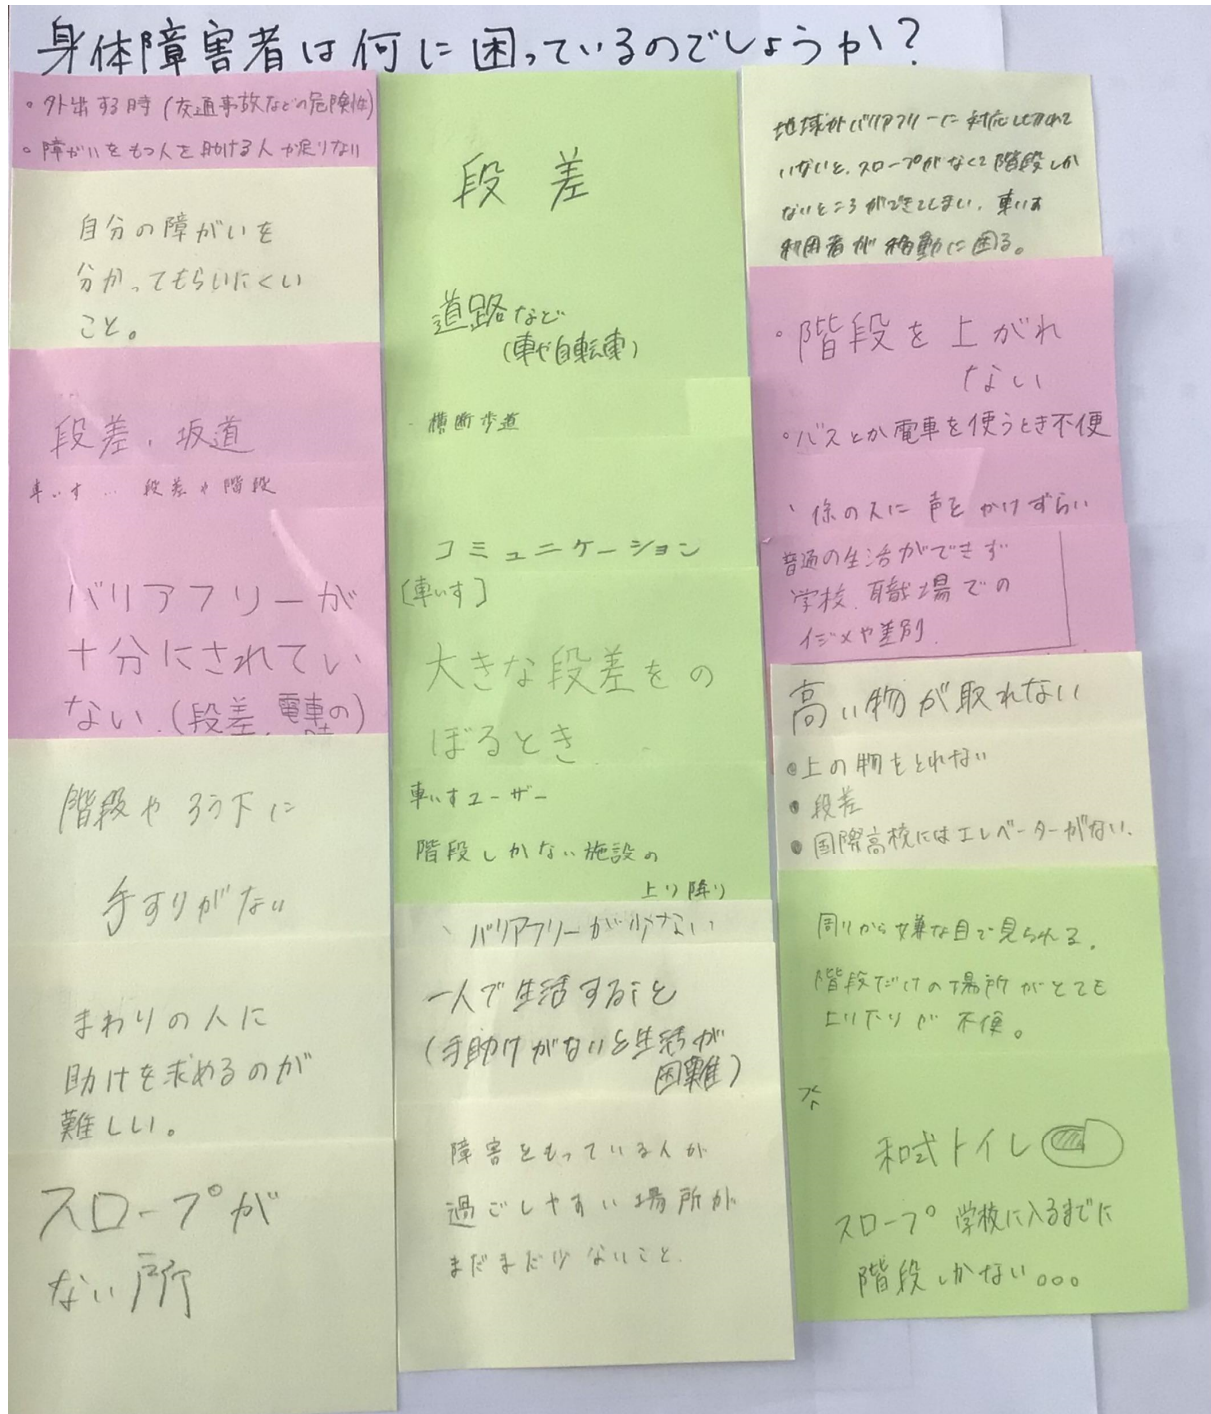 身体障害者は何に困っているのでしょうか?
・外出する時(交通事故などの危険性)
・障がいをもつ人を助ける人が足りない
自分の障がいを
分かってもらいにくい
こと。
段差、坂道
車いす … 段差や階段
バリアフリーが
十分にされてい
ない.(段差、電車の)
階段やろう下に
手すりがない
まわりの人に
助けを求めるのが
難しい。
スロープが
ない所
段差
道路など
(車や自転車)
・横断歩道
コミュニケーション
[車いす]
大きな段差をの
ぼるとき
車いすユーザー
階段しかない施設の
上り降り
、バリアフリーが少ない
一人で生活すること
(手助けがないと生活が
困難)
障害をもっている人が
過ごしやすい場所が
まだまだ少ないこと.
地域がバリアフリーに対応しきれて
いないと、スロープがなくて階段しか
ないところができてしまい、車いす
利用者が移動に困る。
・階段を上がれ
ない
・バスとか電車を使うとき不便
、係の人に声をかけずらい
普通の生活ができず
学校、職場での
イジメや差別.
高い物が取れない
●上の物をとれない
●段差
●国際高校にはエレベーターがない.
周りから嫌な目で見られる.
階段だけの場所がとても
上り下りが不便。
和式トイレ
スロープ 学校に入るまでに
階段しかない。。。